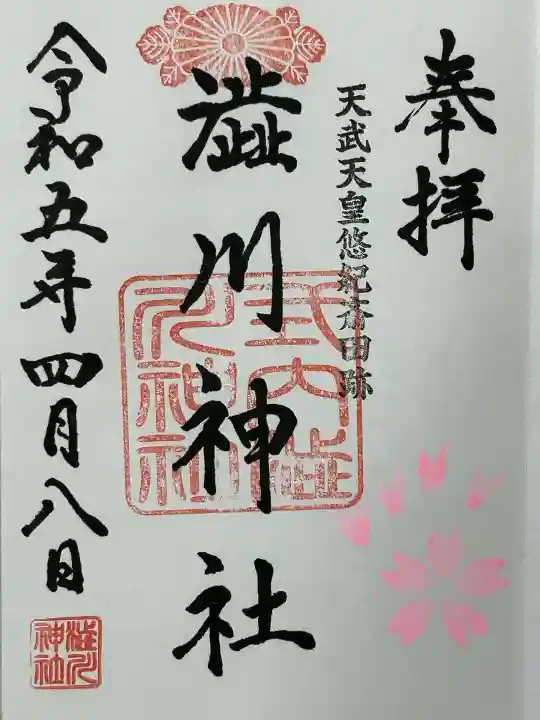 奉拝
天武天皇悠紀斎田跡
澁川神社
式内澁川神社
令和五年四月八日
澁川神社